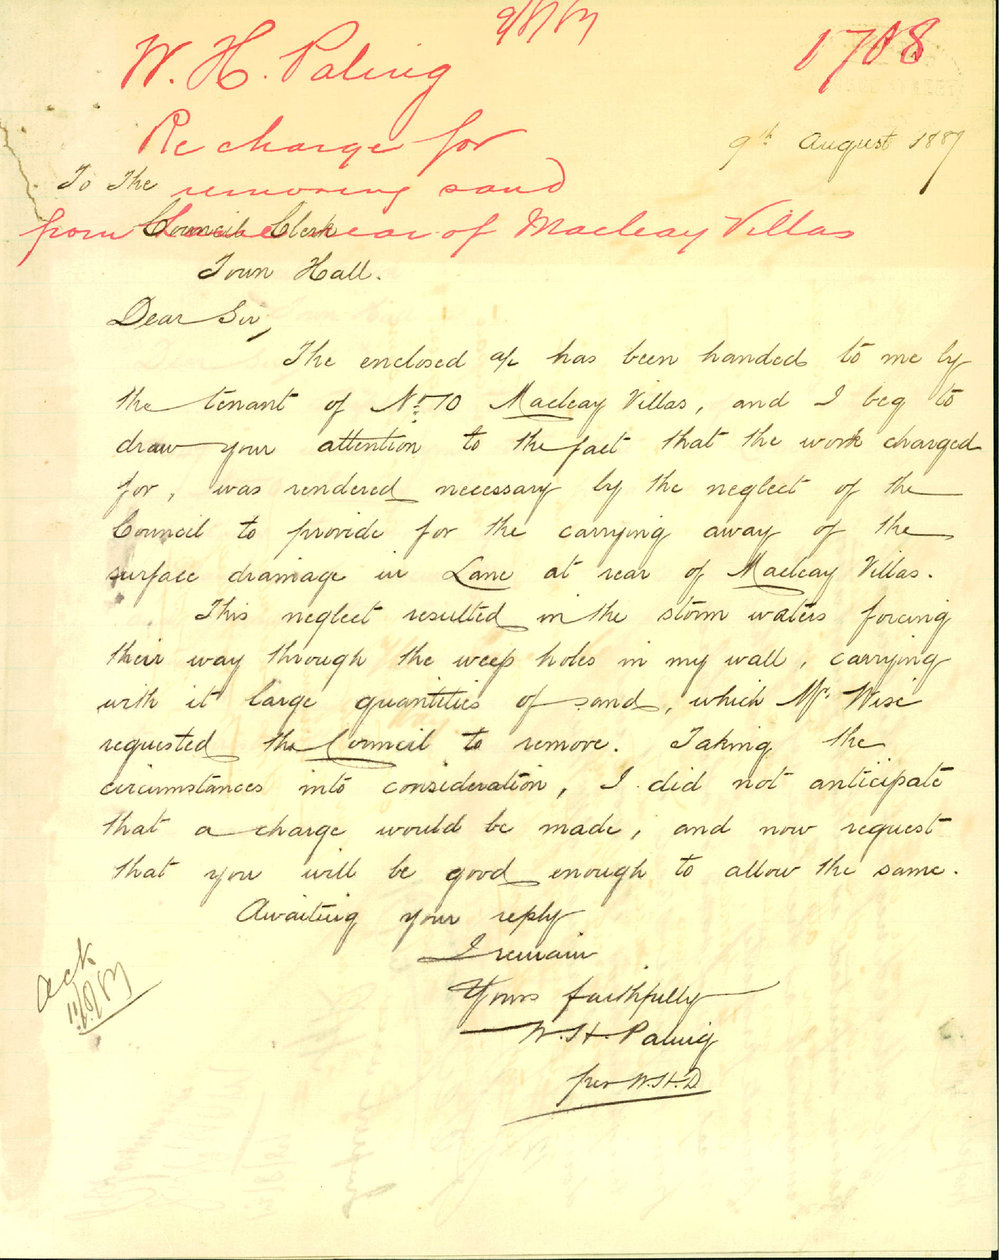 9/8/87
1708
W. H. Paling
Re charge for
removing sand
from Lane rear of Macleay Villas
9th August 1887
To The
Council Clerk
Town Hall.
Dear Sir,
The enclosed a/c has been handed to me by
the tenant of No 10 Macleay Villas, and I beg to
draw your attention to the fact that the work charged
for, was rendered necessary by the neglect of the
Council to provide for the carrying away of the
surface drainage in Lane at rear of Macleay Villas.
This neglect resulted in the storm waters forcing
their way through the weep holes in my wall, carrying
with it large quantities of sand, which Mr Wise
requested the Council to remove. Taking the
circumstances into consideration, I did not anticipate
that a charge would be made, and now request
that you will be good enough to allow the same.
Awaiting your reply
I remain
Yours faithfully
W. H. Paling
per W.H.D
ack
11/8/87